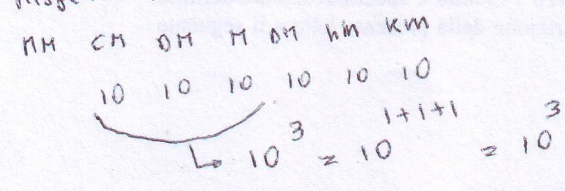 MM CM DM M DM hm Km
10 10 10 10 10 10
↳ 10³ = 10¹⁺¹⁺¹ = 10³